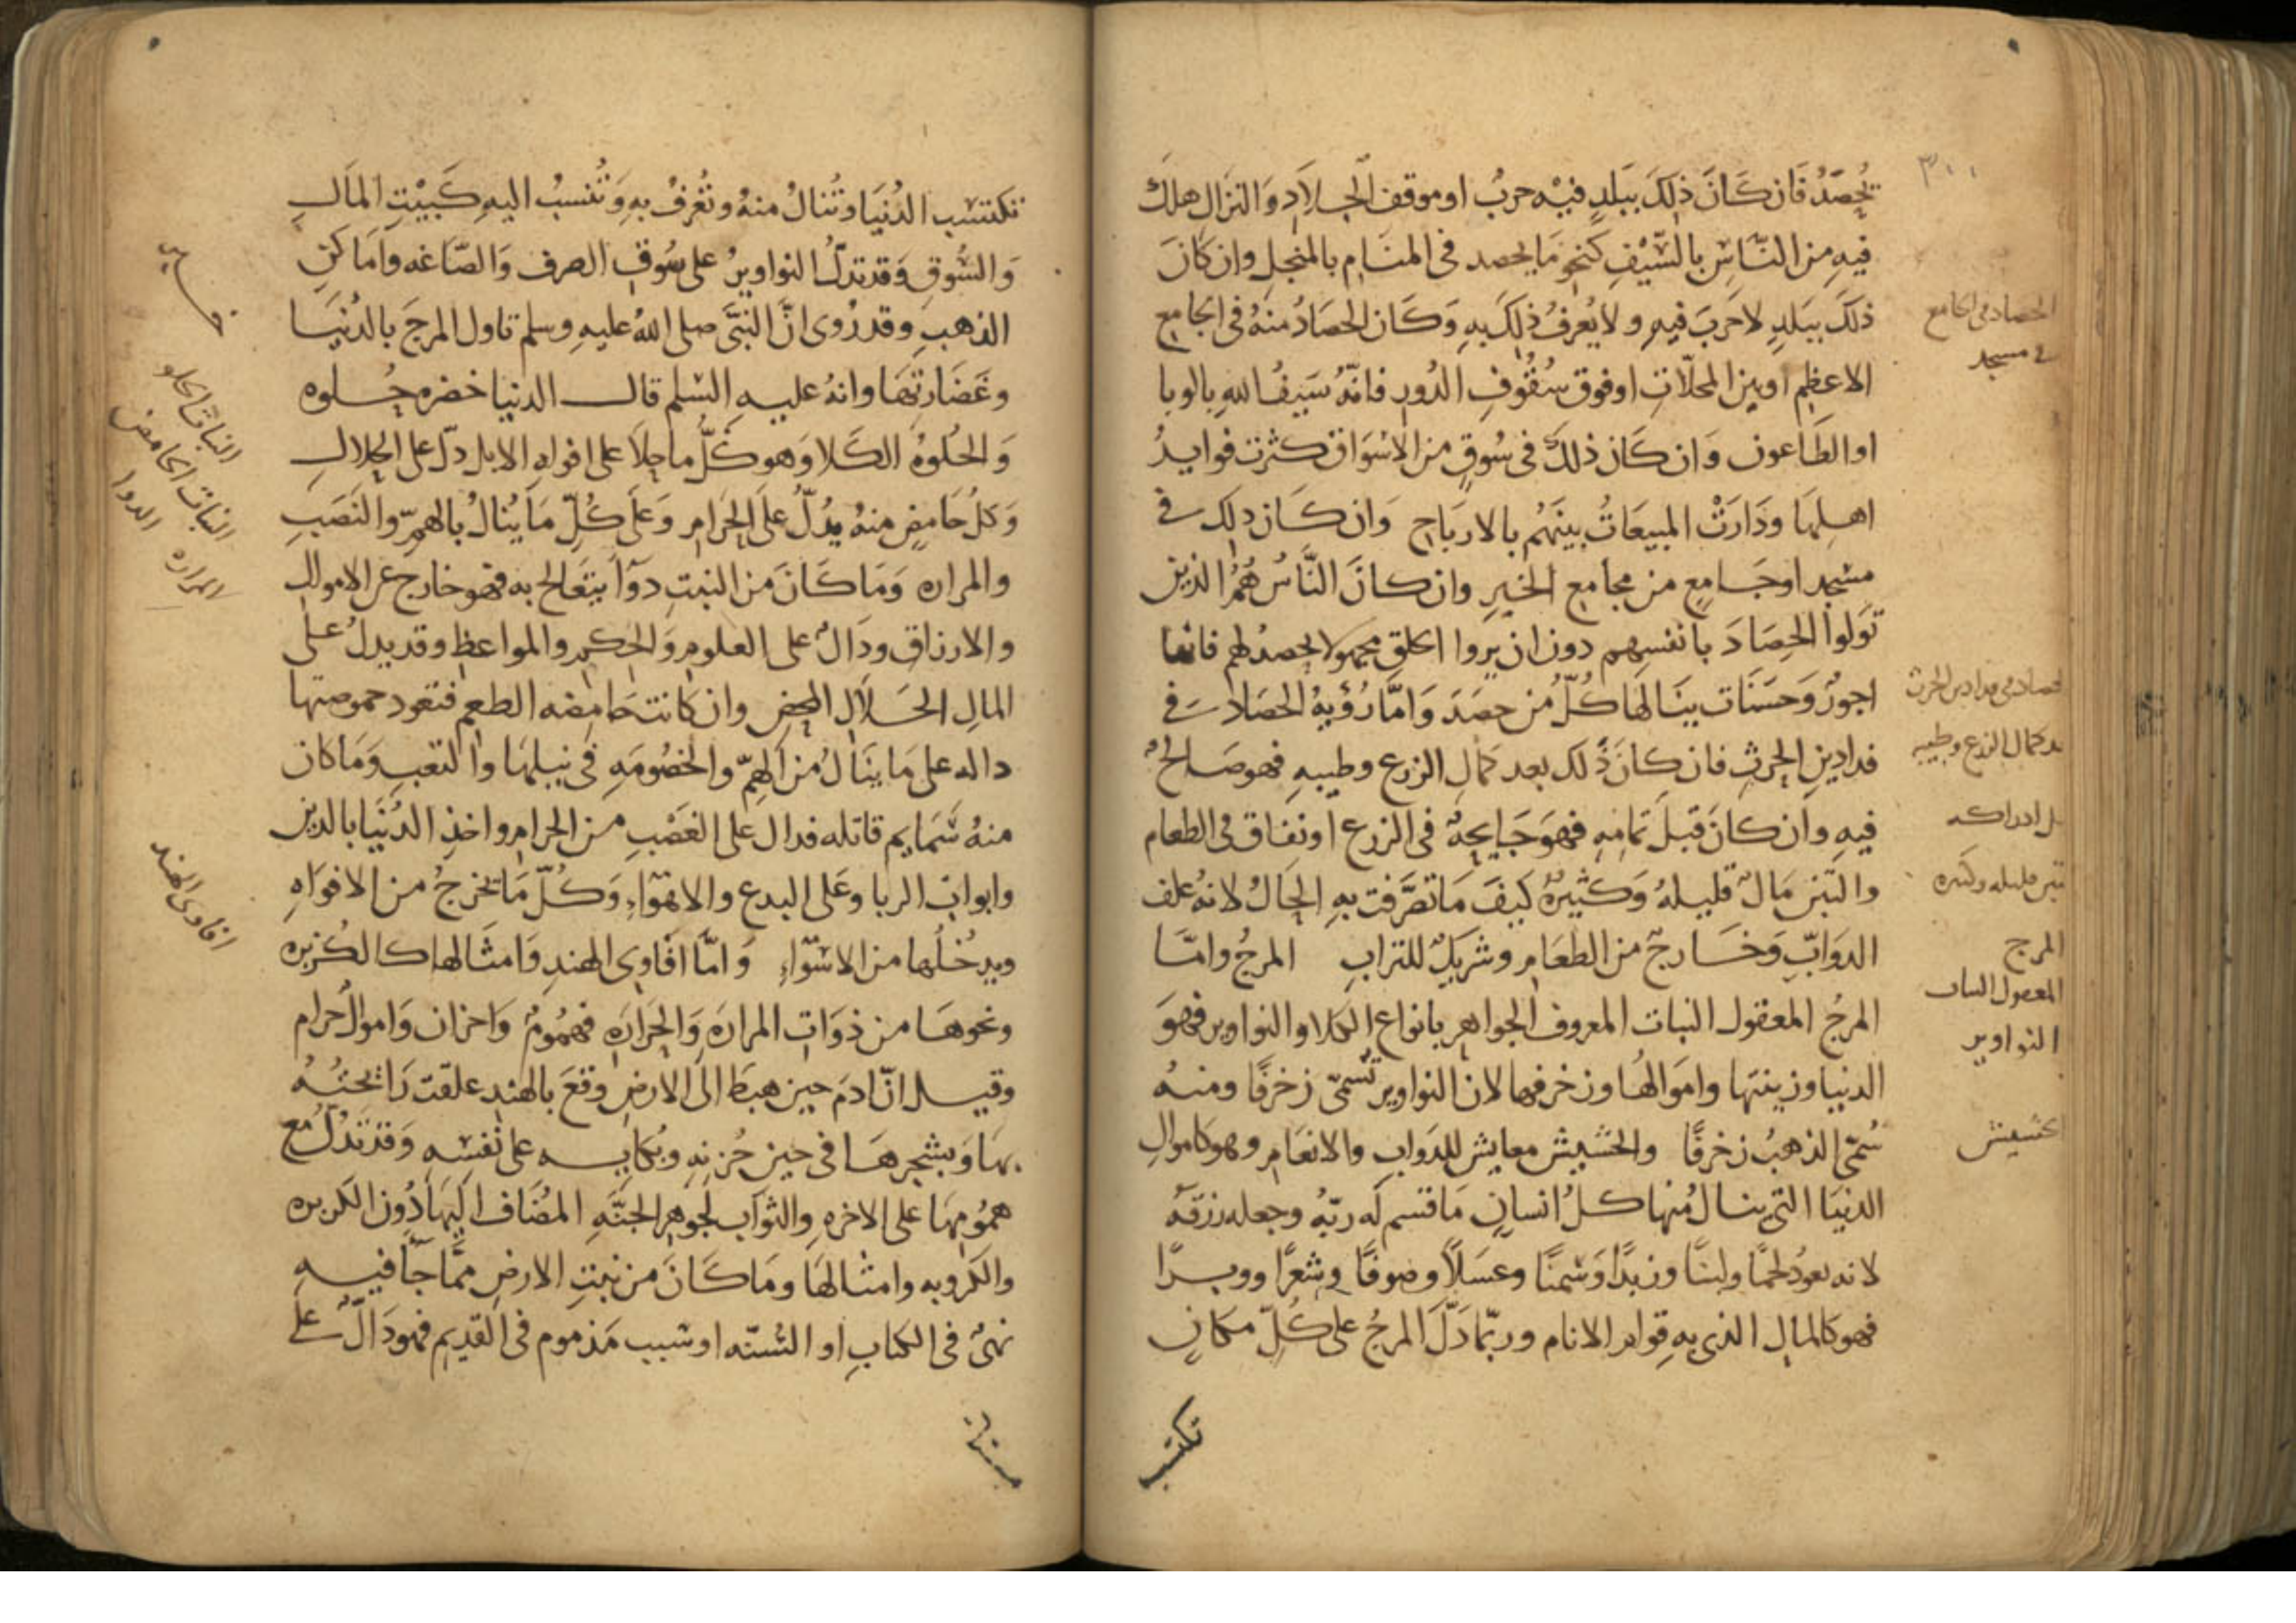 ٣٠١
تحصد فان كان ذلك ببلد فيه حرب او موقف الجلاد والنزال هلك
فيه من الناس بالسيف كنحو ما يحصد فى المنام بالمنجل وان كان
ذلك ببلد لا حرب فيه ولا يعرف ذلك به وكان الحصاد منه فى الجامع
الاعظم او بين المحلات او فوق سقوف الدور فانه سيف الله بالوبا
او الطاعون وان كان ذلك فى سوق من الاسواق كثرت فوايد
اهلها ودارت المبيعات بينهم بالارباح وان كان ذلك فى
مسجد او جامع من مجامع الخير وان كان الناس هم الذين
تولوا الحصاد بانفسهم دون ان يروا الخلق مجهولا يحصد لهم فانها
اجور وحسنات ينالها كل من حصد واما رؤية الحصاد فى
فدادين الحرث فان كان ذلك بعد كمال الزرع وطيبه فهو صالح
فيه وان كان قبل تمامه فهو جايحة فى الزرع او نفاق فى الطعام
والتبن مال قليله وكثيره كيف ما تصرفت به الحال لانه علف
الدواب وخارج من الطعام وشريك للتراب المرج واما
المرج المعقول النبات المعروف الجواهر بانواع الكلا والنواوير فهو
الدنيا وزينتها واموالها وزخرفها لان النواوير تسمى زخرفا ومنه
سمى الذهب زخرفا والحشيش معايش للدواب والانعام وهو كاموال
الدنيا التى ينال منها كل انسان ما قسم له ربه وجعله رزقه
لانه يعود لحما ولبنا وزبدا وسمنا وعسلا وصوفا وشعرا ووبرا
فهو كالمال الذى به قوام الانام وربما دل المرج على كل مكان
تكتسب
الحصاد فى الجامع
فى مسجد
حصاد فى فدادين الحرث
بعد كمال الزرع وطيبه
قبل ادراكه
تبن قليله وكثيره
المرج
المعقول النبات
النواوير
حشيش
تكتسب الدنيا وتنال منه وتعرف به وتنسب اليه كبيت المال
والسوق وقد تدل النواوير على سوق الصرف والصاغه واماكن
الذهب وقد روى ان النبى صلى الله عليه وسلم تاول المرج بالدنيا
وغضارتها وانه عليه السلم قال الدنيا خضره حلوه
والحلوة الكلا وهو كل ما حلا على افواه الابل دل على الحلال
وكل حامض منه يدل على الحرام وعلى كل ما ينال بالهم والنصب
والمراره وما كان من النبت دوآ يتعالج به فهو خارج عن الاموال
والارزاق ودال على العلوم والحكم والمواعظ وقد يدل على
المال الحلال المحض وان كانت حامضه الطعم فتعود حموضتها
داله على ما ينال من الهم والخصومه فى نيلها والتعب وما كان
منه سمايم قاتله فدال على الغصب من الحرام واخذ الدنيا بالدين
وابواب الربا وعلى البدع والاهوآء وكل ما تخرج من الافواه
ويدخلها من الاسوآء واما افاوى الهند وامثالها كالكزبره
ونحوها من ذوات المراره والحراره فهموم واحزان واموال حرام
وقيل ان ادم حين هبط الى الارض وقع بالهند علقت رائحته
بها وبشجرها فى حين حزنه وبكايه على نفسه وقد تدل مع
همومها على الاخره والثوآب لجوهر الجنه المضاف اليها دون الكزبره
والكرويه وامثالها وما كان من نبت الارض مما جآ فيه
نهى فى الكتاب او السنه او سبب مذموم فى القديم فهو دال على
النبات الحلو
النبات الحامض
المراره الدوا
افاوى الهند